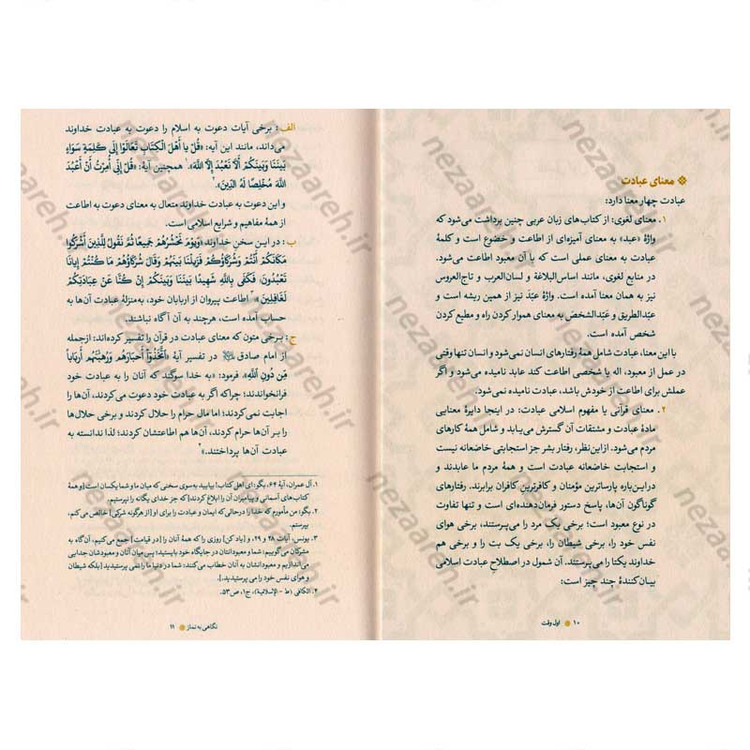 معنای عبادت
عبادت چهار معنا دارد:
۱. معنای لغوی: از کتاب‌های زبان عربی چنین برداشت می‌شود که
واژهٔ «عبد» به معنای آمیزه‌ای از اطاعت و خضوع است و کلمهٔ
عبادت به معنای عملی است که با آن معبود اطاعت می‌شود.
در منابع لغوی، مانند اساس‌البلاغة و لسان‌العرب و تاج‌العروس
نیز به همان معنا آمده است. واژهٔ عبّدَ نیز از همین ریشه است و
عبّدالطریق و عبّدالشخصَ به معنای هموار کردن راه و مطیع کردن
شخص آمده است.
با این معنا، عبادت شامل همهٔ رفتارهای انسان نمی‌شود و انسان تنها وقتی
در عمل از معبود، اله یا شخصی اطاعت کند عابد نامیده می‌شود و اگر
عملش برای اطاعت از خودش باشد، عبادت نامیده نمی‌شود.
۲. معنای قرآنی یا مفهوم اسلامی عبادت: در اینجا دایرهٔ معنایی
مادهٔ عبادت و مشتقات آن گسترش می‌یابد و شامل همهٔ کارهای
مردم می‌شود. از این نظر، رفتار بشر جز استجابتی خاضعانه نیست
و استجابت خاضعانه عبادت است و همهٔ مردم ما عابدند و
در این‌باره پارساترین مؤمنان و کافرترین کافران برابرند. رفتارهای
گوناگون آن‌ها، پاسخ دستور فرمان‌دهنده‌ای است و تنها تفاوت
در نوع معبود است: برخی یک مرد را می‌پرستند، برخی هوای
نفس خود را، برخی شیطان را، برخی یک بت را و برخی هم
خداوند یکتا را می‌پرستند. آن شمول در اصطلاح عبادت اسلامی
بیان‌کنندهٔ چند چیز است:
۱۰ اول وقت
الف: برخی آیات دعوت به اسلام را دعوت به عبادت خداوند
می‌داند، مانند این آیه: «قُلْ یا أَهْلَ الْکِتابِ تَعالَوْا إِلى کَلِمَةٍ سَواءٍ
بَیْنَنا وَبَیْنَکُمْ أَلَّا نَعْبُدَ إِلَّا اللَّهَ»۱ همچنین آیهٔ: «قُلْ إِنِّی أُمِرْتُ أَنْ أَعْبُدَ
اللَّهَ مُخْلِصًا لَهُ الدِّینَ».۲
و این دعوت به عبادت خداوند متعال به معنای دعوت به اطاعت
از همهٔ مفاهیم و شرایع اسلامی است.
ب: در این سخنِ خداوند: «وَیَوْمَ نَحْشُرُهُمْ جَمِیعًا ثُمَّ نَقُولُ لِلَّذِینَ أَشْرَکُوا
مَکانَکُمْ أَنْتُمْ وَشُرَکاؤُکُمْ فَزَیَّلْنا بَیْنَهُمْ وَقالَ شُرَکاؤُهُمْ ما کُنْتُمْ إِیَّانا
تَعْبُدُونَ، فَکَفى بِاللَّهِ شَهِیدًا بَیْنَنا وَبَیْنَکُمْ إِنْ کُنَّا عَنْ عِبادَتِکُمْ
لَغافِلِینَ»۳ اطاعت پیروان از اربابان خود، به‌منزلهٔ عبادت آن‌ها به
حساب آمده است، هرچند به آن آگاه نباشند.
ج: برخی متون که معنای عبادت در قرآن را تفسیر کرده‌اند؛ ازجمله
از امام صادق در تفسیر آیهٔ «اتَّخَذُوا أَحْبارَهُمْ وَرُهْبانَهُمْ أَرْبابًا
مِنْ دُونِ اللَّهِ»، فرمود: «به خدا سوگند که آنان را به عبادت خود
فرانخواندند؛ چراکه اگر به عبادت خود دعوت می‌کردند، آن‌ها را
اجابت نمی‌کردند؛ اما مال حرام را حلال کردند و برخی حلال‌ها
را بر آن‌ها حرام کردند، آن‌ها هم اطاعتشان کردند؛ لذا ندانسته به
عبادت آن‌ها پرداختند.»۴
۱. آل عمران، آیهٔ ۶۴، بگو: ای اهل کتاب! بیایید به‌سوی سخنی که میان ما و شما یکسان است [و همهٔ
کتاب‌های آسمانی و پیامبران آن را ابلاغ کردند] که جز خدای یگانه را نپرستیم.
۲. بگو: من مأمورم که خدا را درحالی‌که ایمان و عبادت را برای او [از هرگونه شرکی] خالص می‌کنم،
بپرستم.
۳. یونس، آیات ۲۸ و ۲۹، و [یاد کن] روزی را که همهٔ آنان را [در قیامت] جمع می‌کنیم، آن‌گاه به
مشرکان می‌گوییم: شما و معبودانتان در جایگاه خود بایستید؛ پس میان آنان و معبودشان جدایی
می‌اندازیم و معبودانشان به آنان خطاب می‌کنند: شما در دنیا ما را نمی‌پرستیدید [بلکه شیطان
و هوای نفس خود را می‌پرستیدید].
۴. الکافی (ط - الإسلامیة)، ج۱، ص۵۳.
نگاهی به نماز ۱۱
nezaareh.ir